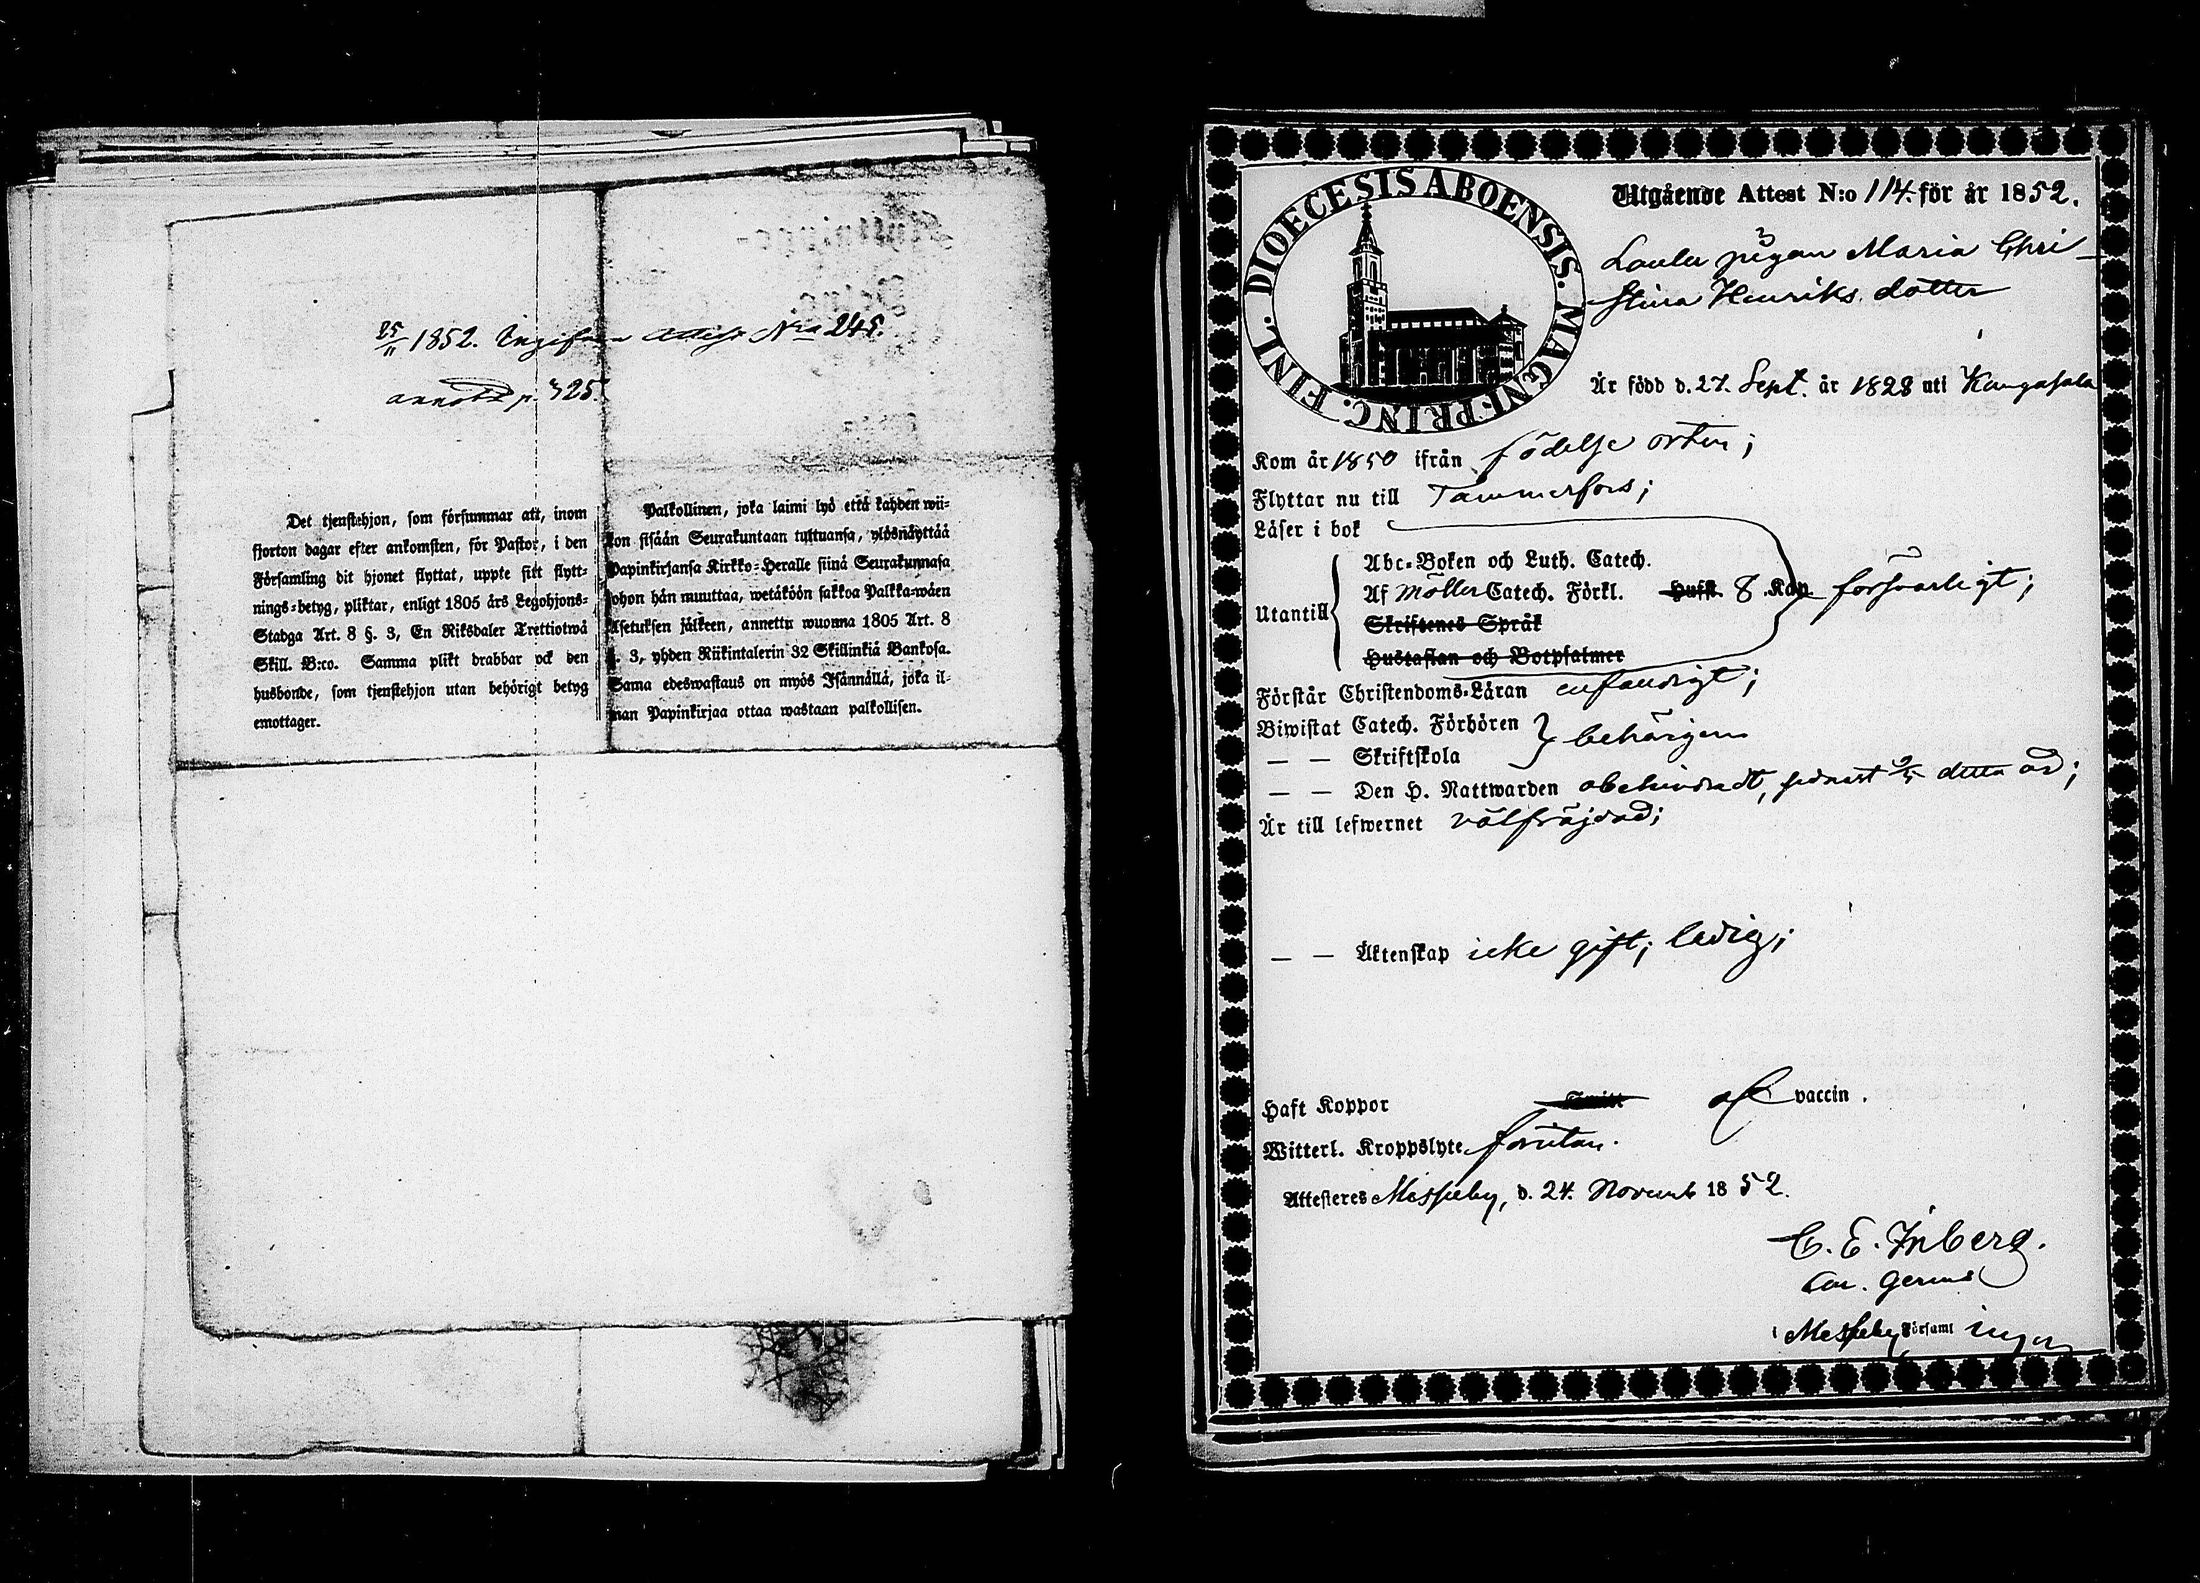 25/11 1852. Ingifven Attest Nro 245.
annot. p. 325.
Det tjenstehjon, som försummar att, inom
fjorton dagar efter ankomsten, för Pastor, i den
Församling dit hjonet flyttat, uppte sitt flytt-
nings-betyg, pliktar, enligt 1805 års Legohjons-
Stadga Art. 8 §. 3, En Riksdaler Trettiotwå
Skill. B:co. Samma plikt drabbar ock den
husbonde, som tjenstehjon utan behörigt betyg
emottager.
Palkollinen, joka laimi lyö että kahden wii-
kon sisään Seurakuntaan tultuansa, ylösnäyttää
Papinkirjansa Kirkko-Heralle siinä Seurakunnasa
johon hän muuttaa, wetäköön sakkoa Palkka-wäen
Asetuksen jälkeen, annettu wuonna 1805 Art. 8
§. 3, yhden Riikintalerin 32 Skillinkiä Bankosa.
Sama edeswastaus on myös Isännällä, joka il-
man Papinkirjaa ottaa wastaan palkollisen.
DIOECESIS ABOENSIS. MAGNI PRINC. FINL.
Utgående Attest N:o 114. för år 1852.
pigan Maria Chri-
stina Henriks dotter
Är född d. 27. Sept. år 1828 uti Kangasala
Kom år 1850 ifrån födelse orten;
Flyttar nu till Tammerfors;
Läser i bok
Utantill
Abc-Boken och Luth. Catech.
Af Möller Catech. Förkl. Husst. 8 Kap. försvarligt;
Skriftenes Språk
Hustaflan och Botpsalmer
Förstår Christendoms-Läran enfaldigt;
Biwistat Catech. Förhören } behörigen
— — Skriftskola
— — Den H. Nattwarden obehindradt, sednast 9/5 detta år;
Är till lefwernet välfräjdad;
— — Äktenskap icke gift; ledig;
Haft Koppor af vaccin.
Witterl. Kroppslyte förutan.
Attesteras Messuby, d. 24. Novemb 1852.
C. E. Inberg.
Messuby Församl ingen